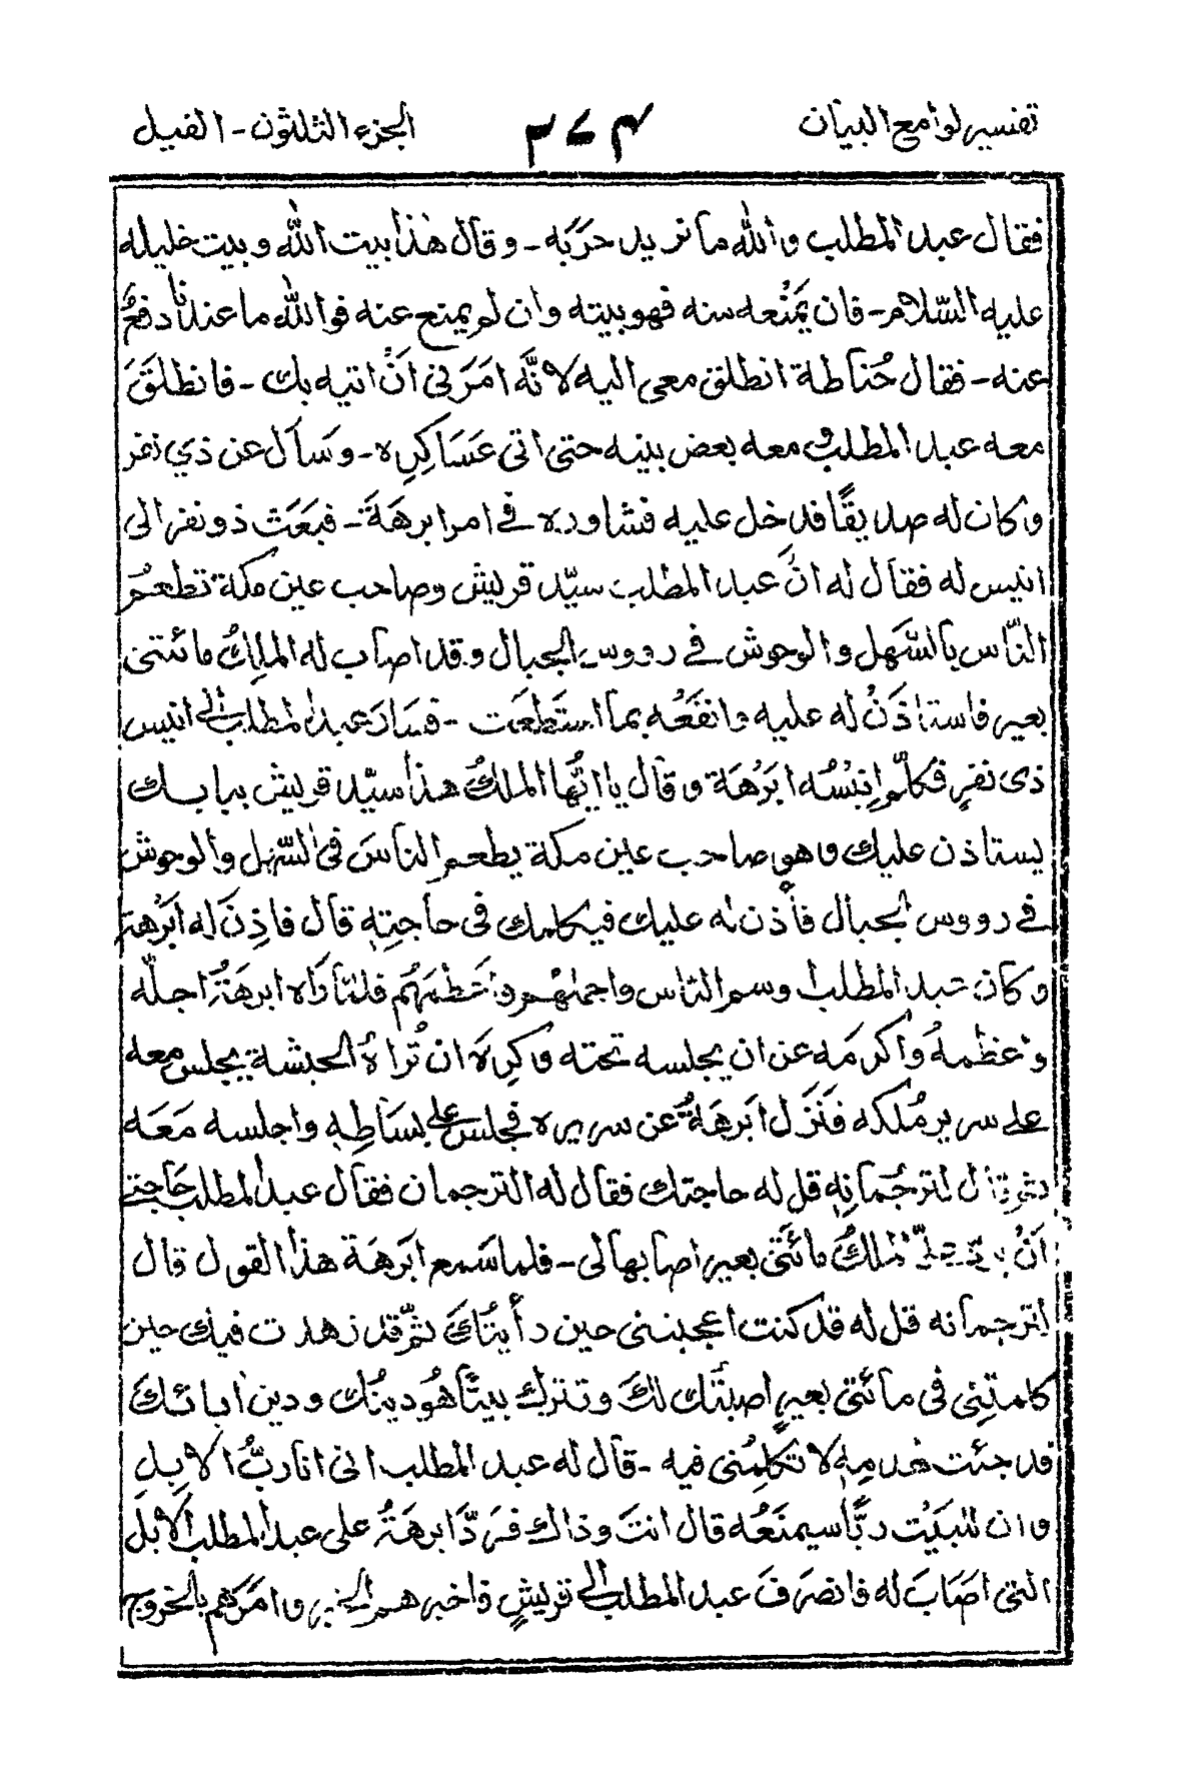 تفسير لوامع البيان ٣٧٤ الجزء الثلثون - الفيل
فقال عبد المطلب والله ما نريد حَرَبَه - وقال هٰذا بيت الله وبيت خليله
عليه السّلام - فان يَمْنُعه منه فهو بيته وان لم يمنع عنه فوالله ما عندنا دفعٌ
عنه - فقال حُناطة انطلق معى اليه لانَّه امَرَنى انْ اتيه بك - فانطلَقَ
معه عبد المطلب و معه بعض بنيه حتى اتى عَسَاكِره - وسَأل عن ذي نفر
وكان له صديقًا فدخل عليه فشاوره فے امر ابرهَةَ - فبَعَث ذو نفر الى
انيس له فقال له انَّ عبد المطلب سيّد قريش وصاحب عين مكة تطعمُ
النّاس بالسَّهل والوحوش فے رووس الجبال وقد اصاب له المَلِكُ مائتى
بعير فاستاذَنْ له عليه وانفَعْه بما استَطعَت - فسَارَ عبد المطلب الى انيس
ذى نفرٍ فكلّم اِنيْسُه ابَرْهَة وقال يا ايُّها الملكُ هذا سيّد قريش ببابك
يستاذن عليك وهو صاحب عين مكة يطعم الناسَ فى السّهل والوحوش
فے رووس الجبال فأذن له عليك فيكلمك فى حاجتِهٖ قال فاذِنَ له ابَرْهة
وكان عبد المطلب اوسم الناس واجملهُم واعظمَهُم فلمّا رَاٰه ابرهَةُ اجلّه
واعظمهُ واكرمَه عن ان يجلسه تحته وكرِهَ ان تُراهُ الحبشة يجلس معه
على سرير مُلكه فنَزَل ابَرهَةُ عن سريره فجلس على بسَاطِهٖ واجلسه مَعَه
ثم قال لترجُمانِهٖ قل له حاجتك فقال له الترجمان فقال عبد المطلب حَاجتے
انْ يردّ علىّ الملكُ مائتَى بعير اصابها لى - فلما سَمع ابَرهَة هذا القول قال
لترجمانه قل له قد كنت اعجبتنى حين رأيتُكَ ثمّ قد زهدت فيك حين
كلمتِنى فى مائتى بعيرٍ اصبتُها لكَ وتترك بيتًا هُو دينُك ودين اٰبائكَ
قد جئت لهدمِهٖ لا تكلِمُنى فيه - قال له عبد المطلب انى انا ربُّ الابِلِ
وان للبيَتْ ربًّا سيمنَعُه قال انتَ وذاك فرَدَّ ابرهَةُ على عبد المطلب الابل
التى اصَابَ له فانصرَفَ عبد المطلب الى قريشٍ فاخبرهم الخبر وامَرَهُم بالخروج